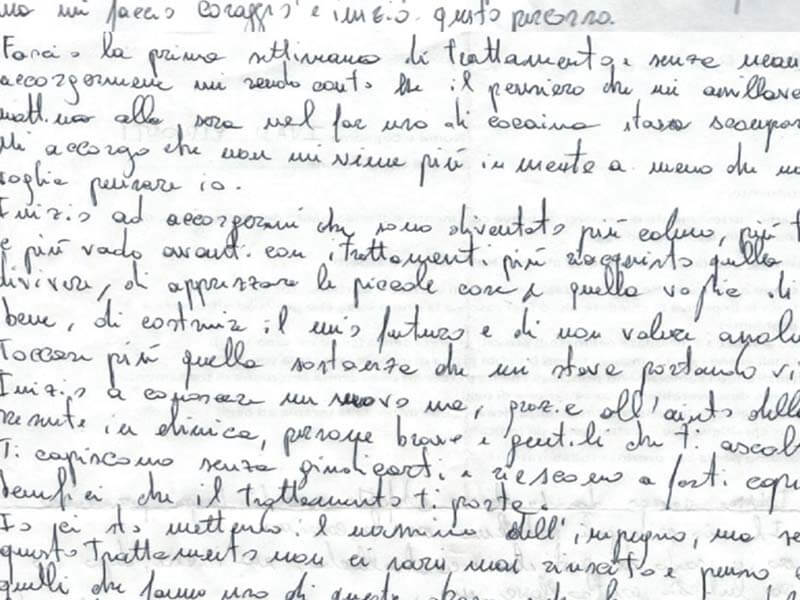 ma mi faccio coraggio e inizio questo percorso.
Faccio la prima settimana di trattamento, e senza nean
accorgermene mi rendo conto che il pensiero che mi assillava
mattina alla sera nel far uso di cocaina stava scompar
Mi accorgo che non mi viene più in mente a meno che no
voglia pensare io.
Inizio ad accorgermi che sono diventato più calmo, più t
e più vado avanti con i trattamenti più riacquisto quella
di vivere, di apprezzare le piccole cose, quella voglia di
bene, di costruire il mio futuro e di non voler assolu
toccare più quella sostanza che mi stava portando vi
Inizio a conoscere un nuovo me, grazie all'aiuto delle
in clinica, persone brave e gentili che ti ascol
Ti capiscono senza giudicarti e riescono a farti capi
benefici che il trattamento ti porta.
Io ci sto mettendo il massimo dell'impegno, ma se
questo trattamento non ci sarei mai riuscito e penso
quelli che fanno uso di questa